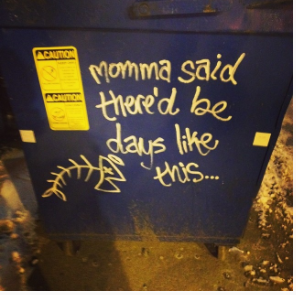 CAUTION
CAUTION
momma said
there'd be
days like
this...